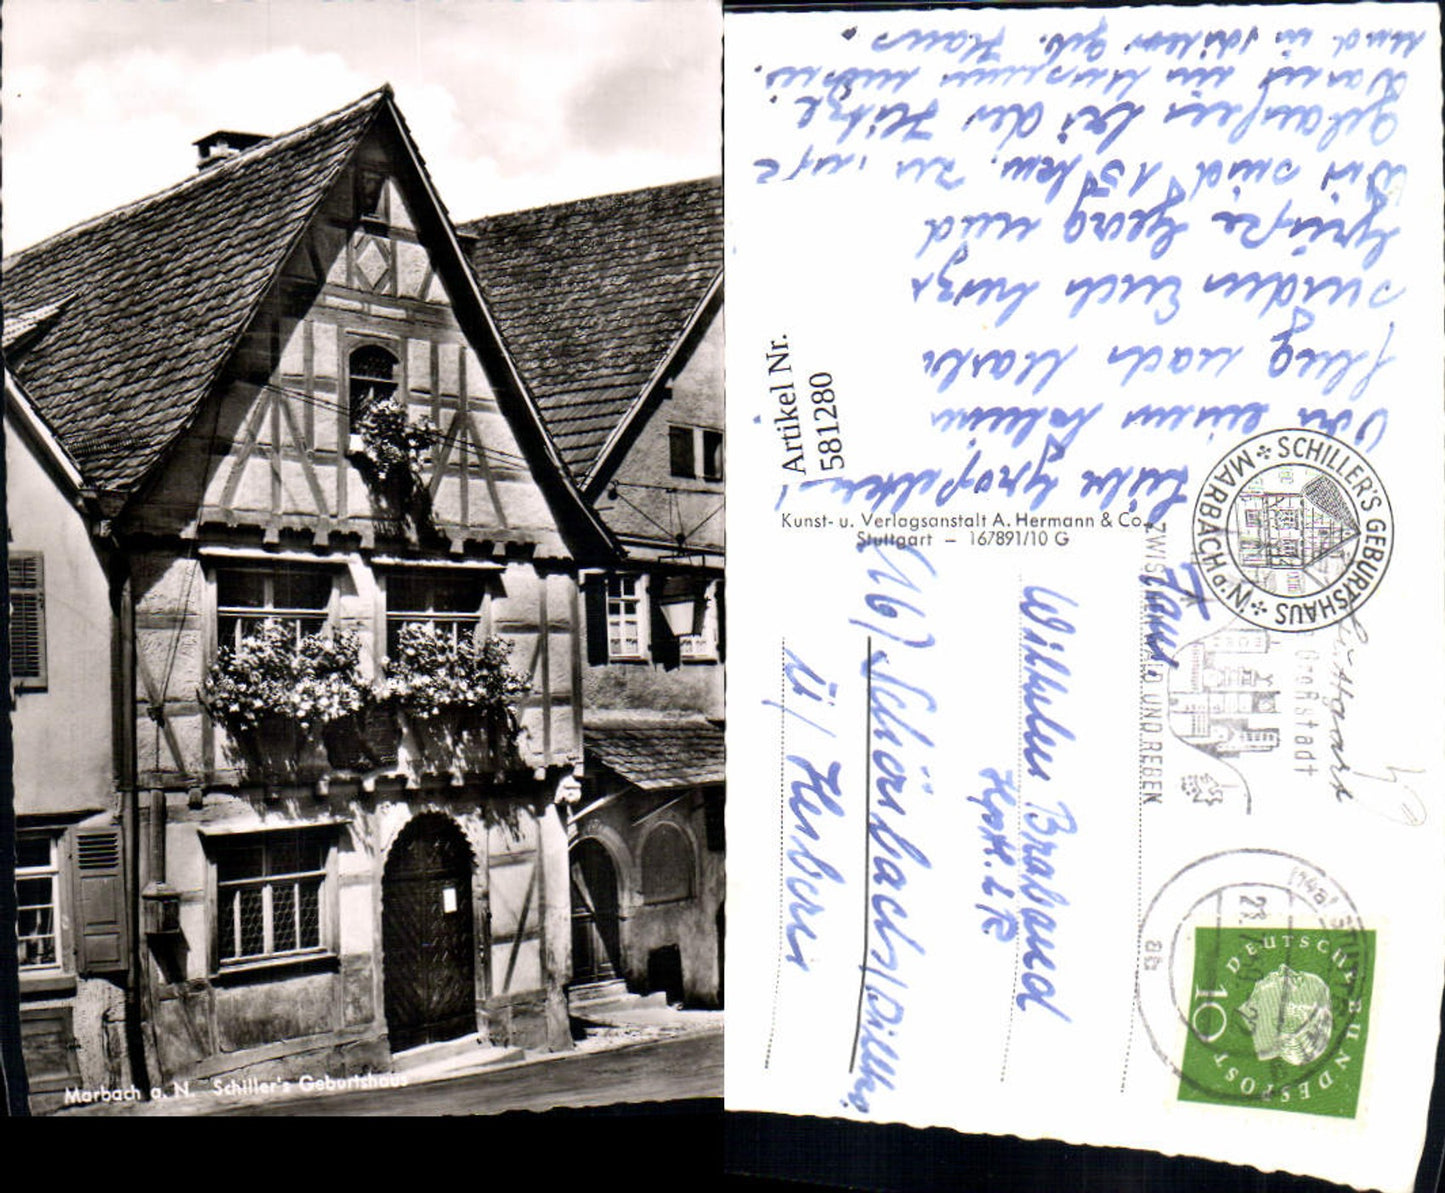 Marbach a. N. Schiller's Geburtshaus
Artikel Nr.
581280
Kunst- u. Verlagsanstalt A. Hermann & Co.
Stuttgart — 167891/10 G
SCHILLER'S GEBURTSHAUS
MARBACH a/N.
Liebe Großeltern!
Von einem kleinen
flug nach Marb.
senden Euch herzl
Grüße Georg und
Wir sind 15 km. zu Fuße
gelaufen bei der Hitze.
Waren im Museum
und in Schiller geb. Haus.
Fam
Wilhelm Braband
(16) Schönbach/Dillkr.
ü/ Herborn
ZWISCHEN WALD UND REBEN
Großstadt
Stuttgart
DEUTSCHE BUNDESPOST
10